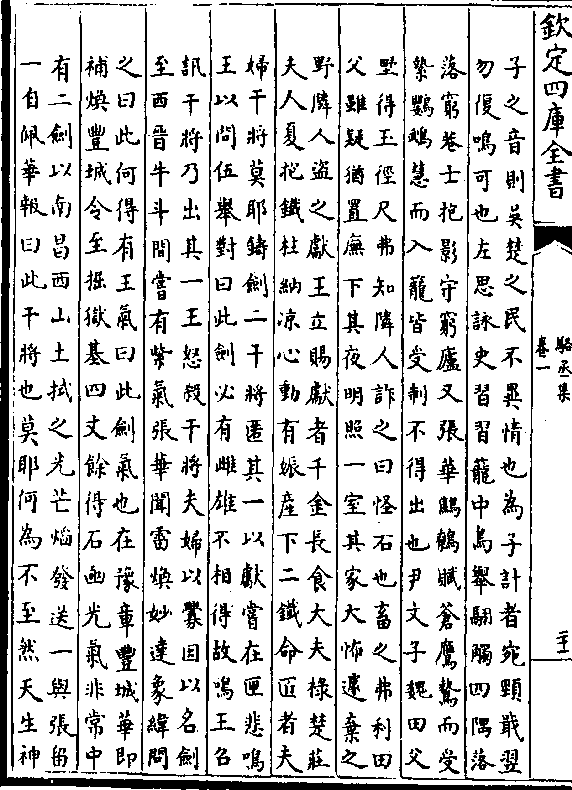 欽定四庫全書
駱丞集
卷一
子之音則吳楚之民不異情也為子計者宛頸戢翌
勿復鳴可也左思詠史習習籠中鳥舉翮觸四隅落
落窮巷士抱影守窮廬又張華鷦鷯賦蒼鷹鷙而受
緤鸚鵡慧而入籠皆受制不得出也尹文子魏田父
埜得玉徑尺弗知隣人詐之曰怪石也畜之弗利田
父雖疑猶置廡下其夜明照一室其家大怖遽棄之
野隣人盜之獻王立賜獻者千金長食大夫祿楚莊
夫人夏抱鐵柱納凉心動有娠產下二鐵命匠者夫
婦干將莫耶鑄劍二干將匿其一以獻嘗在匣悲鳴
王以問伍舉對曰此劍必有雌雄不相得故鳴王召
訊干將乃出其一王怒殺干將夫婦以釁因以名劍
至西晉牛斗間嘗有紫氣張華聞雷煥妙達象緯問
之曰此何得有王氣曰此劍氣也在豫章豐城華即
補煥豐城令至掘獄基四丈餘得石凾光氣非常中
有二劍以南昌西山土拭之光芒焰發送一與張留
一自佩華報曰此干將也莫耶何為不至然天生神